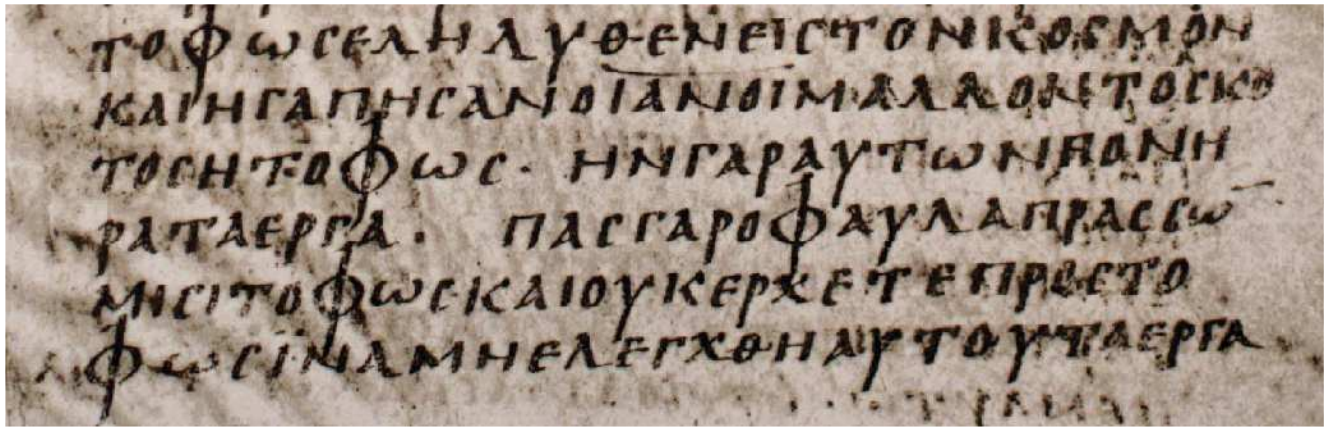 ΤΟΦΩCΕΛΗΛΥΘΕΝΕΙCΤΟΝΚΟCΜΟΝ
ΚΑΙΗΓΑΠΗCΑΝΟΙΑΝΟΙΜΑΛΛΟΝΤΟCΚΟ
ΤΟCΗΤΟΦΩC· ΗΝΓΑΡΑΥΤΩΝΠΟΝΗ
ΡΑΤΑΕΡΓΑ· ΠΑCΓΑΡΟΦΑΥΛΑΠΡΑCCΩ̅
ΜΙCΙΤΟΦΩCΚΑΙΟΥΚΕΡΧΕΤΕΠΡΟCΤΟ
ΦΩCΪΝΑΜΗΕΛΕΓΧΘΗΑΥΤΟΥΤΑΕΡΓΑ